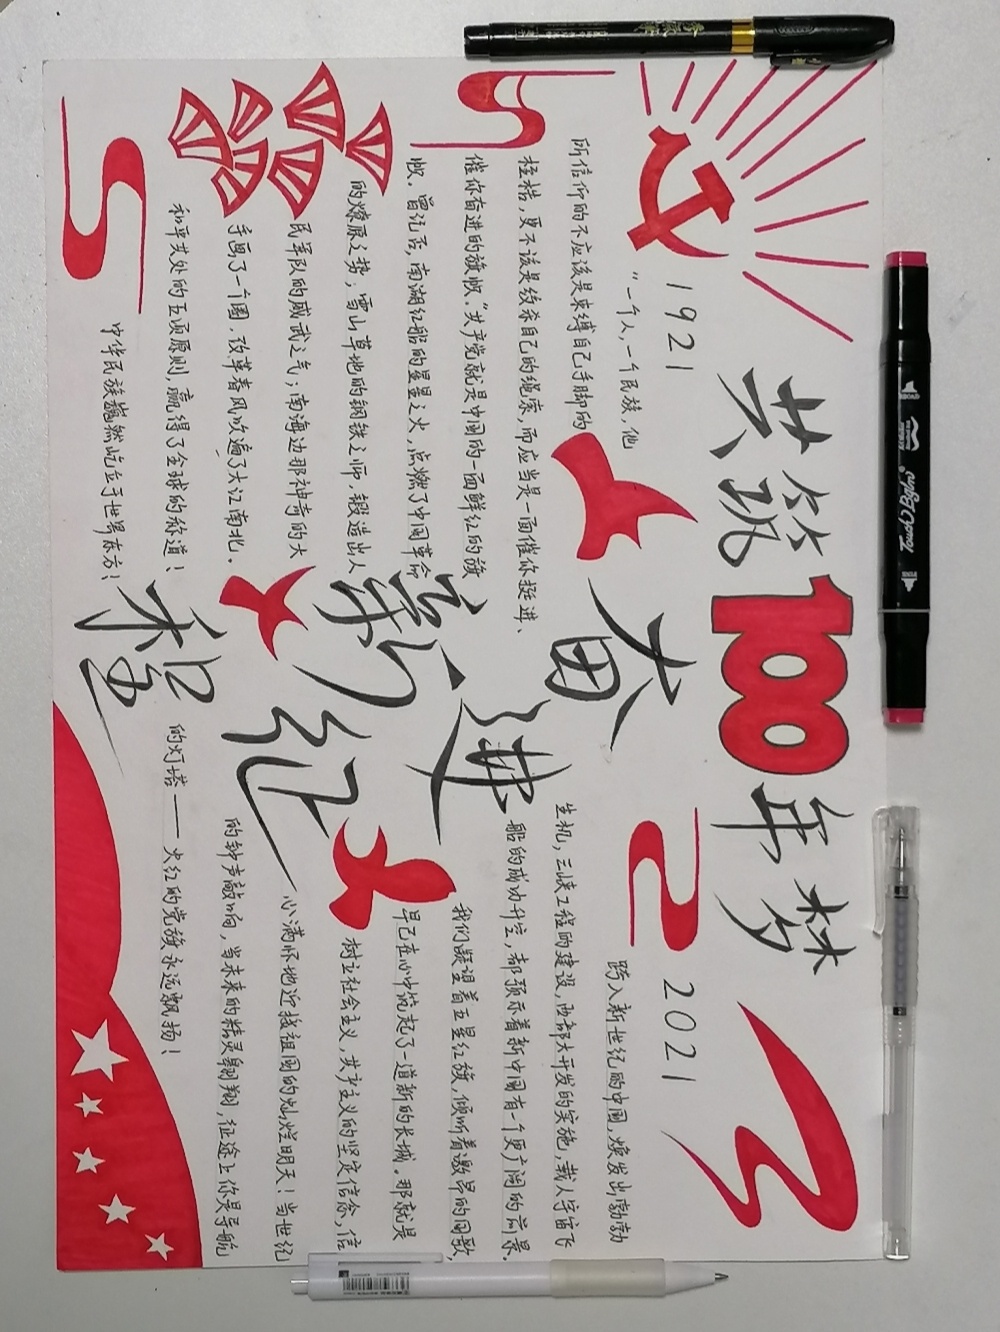 共筑100年梦
1921
2021
"一个人,一个民族,他
所信仰的不应该是束缚自己手脚的
桎梏,更不该是绞杀自己的绳索,而应当是一面催你挺进、
催你奋进的旗帜。"共产党就是中国的一面鲜红的旗
帜。曾记否,南湖红船的星星之火,点燃了中国革命
的燎原之势;雪山草地的钢铁之师,锻造出人
民军队的威武之气;南海边那神奇的大
手画了一个圈,改革春风吹遍了大江南北。
和平共处的五项原则,赢得了全球的称道!
中华民族巍然屹立于世界东方!
奋进
新纪
程
跨入新世纪的中国,焕发出勃勃
生机,三峡工程的建设,西部大开发的实施,载人宇宙飞
船的成功升空,都预示着新中国有一个更广阔的前景。
我们凝望着五星红旗,倾听着激昂的国歌,
早已在心中筑起了一道新的长城。那就是
树立社会主义,共产主义的坚定信念,信
心满怀地迎接祖国的灿烂明天!当世纪
的钟声敲响,当未来的精灵翱翔,征途上你是导航
的灯塔——火红的党旗永远飘扬!
Touch